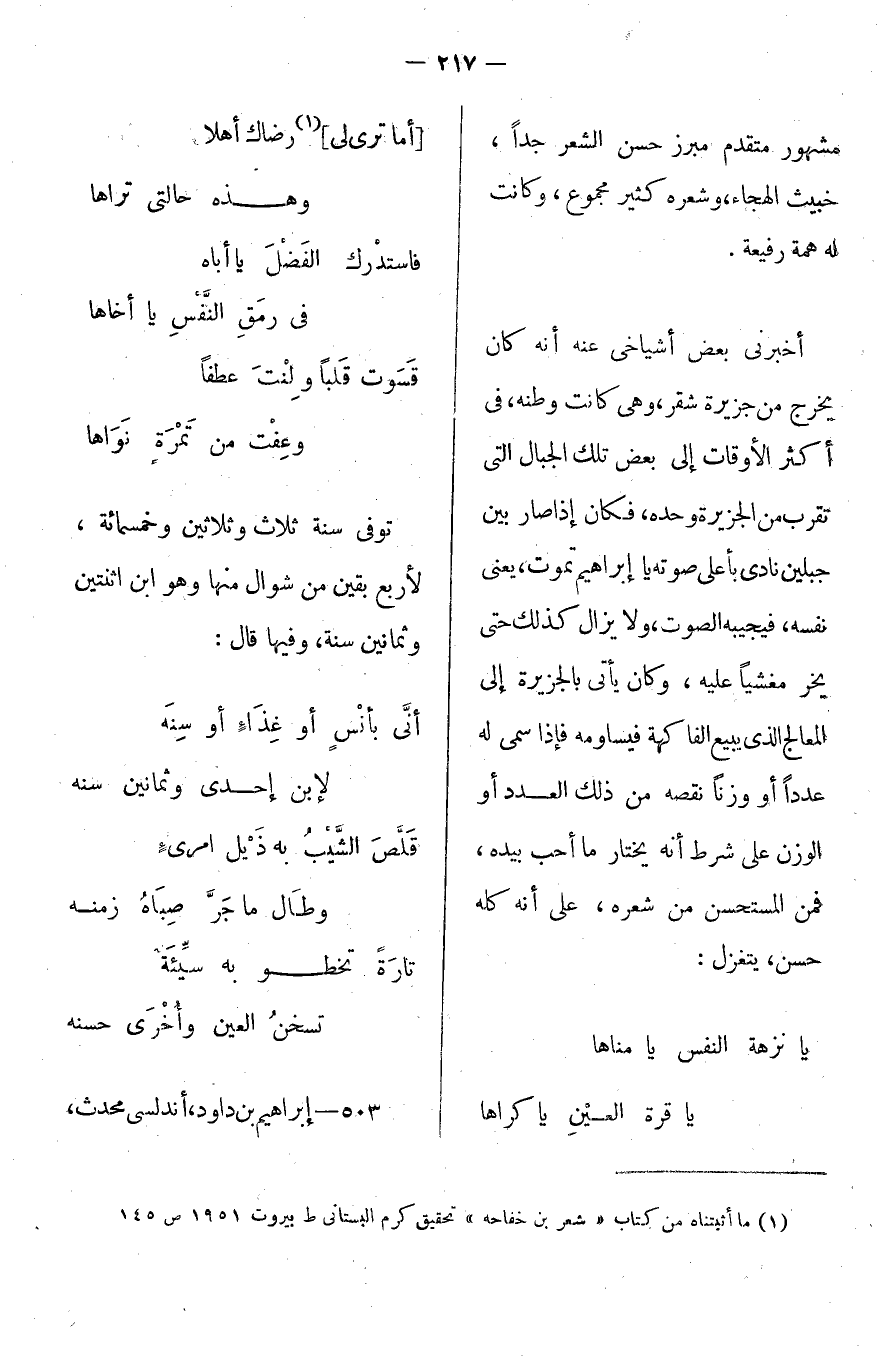 — ٢١٧ —
مشهور متقدم مبرز حسن الشعر جداً ،
خبيث الهجاء، وشعره كثير مجموع ، وكانت
له همة رفيعة .
أخبرنى بعض أشياخى عنه أنه كان
يخرج من جزيرة شقر، وهى كانت وطنه، فى
أكثر الأوقات إلى بعض تلك الجبال التى
تقرب من الجزيرة وحده، فكان إذا صار بين
جبلين نادى بأعلى صوته يا إبراهيم تموت، يعنى
نفسه، فيجيبه الصوت، ولا يزال كذلك حتى
يخر مغشياً عليه ، وكان يأتى بالجزيرة إلى
المعالج الذى يبيع الفاكهة فيساومه فإذا سمى له
عدداً أو وزناً نقصه من ذلك العـــدد أو
الوزن على شرط أنه يختار ما أحب بيده ،
فمن المستحسن من شعره ، على أنه كله
حسن، يتغزل :
يا نزهة النفس يا مناها
يا قرة العــيْنِ يا كراها
[أما ترى لى](١) رضاك أهلا
وهـــــذه حالتى تراها
فاستدْرك الفَضْلَ يا أباه
فى رمَقِ النَّفْسِ يا أخاها
قَسَوت قَلباً ولِنْتَ عطفاً
وعِفْت من تَمْرَةٍ نَوَاها
توفى سنة ثلاث وثلاثين وخمسمائة ،
لأربع بقين من شوال منها وهو ابن اثنتين
وثمانين سنة، وفيها قال :
أنَّى بأنْسٍ أو غِذَاءٍ أو سِنَه
لإبن إحـــدى وثمانين سنه
قَلَّصَ الشَّيْبُ به ذَيْل امرىءٍ
وطَال ما جَرَّ صِبَاهُ زمنــه
تارَةً تخطـــــو به سيِّئَةٌ
تسخنُ العين وأُخْرَى حسنه
٥٠٣ — إبراهيم بن داود، أندلسى محدث،
(١) ما أثبتناه من كتاب « شعر بن خفاجه » تحقيق كرم البستانى ط بيروت ١٩٥١ ص ١٤٥